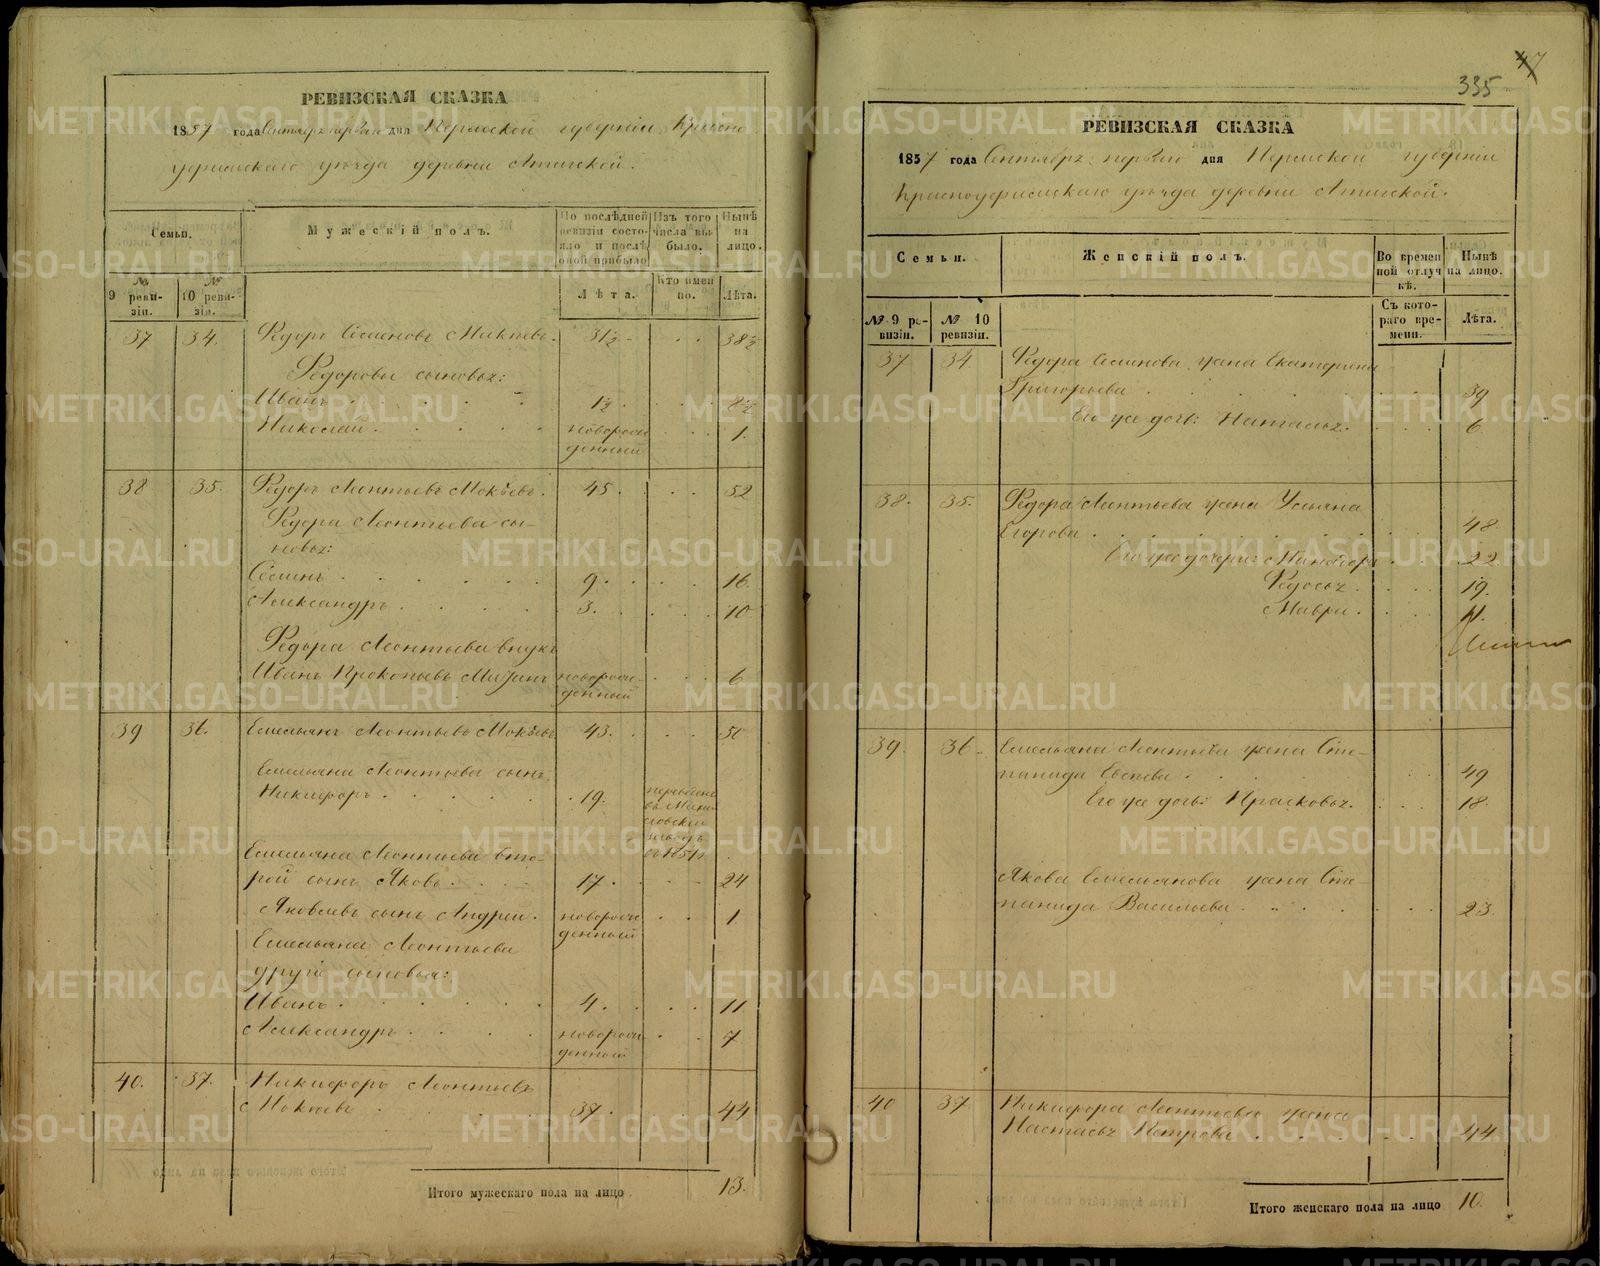 РЕВИЗСКАЯ СКАЗКА
1857 года Сентября первого дня Пермской губернии Красно-
уфимскаго уезда деревни Атигской.
Семьи.
Мужескій полъ.
По послѣдней ревизіи состояло и послѣ оной прибыло
Изъ того числа выбыло.
Нынѣ на лицо.
№ 9 ревизіи.
№ 10 ревизіи.
Лѣта.
Кто именно.
Лѣта.
37 34. Федоръ Семеновъ 31½ 38½
Федоровы сыновья:
Иванъ 1½ 8½
Николай новорожденный 1.
38 35. Федоръ Леонтьевъ Мокѣевъ. 45. 52
Федора Леонтьева сы-
новья:
Семенъ 9. 16.
Александръ 3. 10
Федора Леонтьева внукъ
Иванъ Прокопьевъ новорожденный 6
39 36. Емельянъ Леонтьевъ Мокѣевъ 43. 50
Емельяна Леонтьева сынъ
Никифоръ 19.
Емельяна Леонтьева вто-
рой сынъ Яковъ 17. 24
Яковлевъ сынъ Андрей. новорожденный 1
Емельяна Леонтьева
другіе сыновья:
Иванъ 4. 11
Александръ новорожденный 7
40. 37. Никифоръ Леонтьевъ
Мокѣевъ 37. 44
Итого мужескаго пола на лицо 13.
47
335
РЕВИЗСКАЯ СКАЗКА
1857 года Сентября первого дня Пермской губерніи
Красноуфимскаго уѣзда деревни Атигской.
Семьи.
Женскій полъ.
Во временной отлучкѣ.
Нынѣ на лицо.
№ 9 ревизіи.
№ 10 ревизіи.
Съ котораго времени.
Лѣта.
37 34 Федора Семенова жена Екатерина
Григорьева 39
Его же дочь: Наталья. 6
38. 35. Федора Леонтьева жена Ульяна
Егорова 48
Его же дочери: 22
Федосья 19.
Мавра. 11.
39. 36. Емельяна Леонтьева жена Сте-
панида 49
Его же дочь: Прасковья. 18.
Якова Емельянова жена Сте-
панида Васильева 23
40 37 Никифора Леонтьева жена
Настасья Петрова 44.
Итого женскаго пола на лицо 10.
METRIKI.GASO-URAL.RU